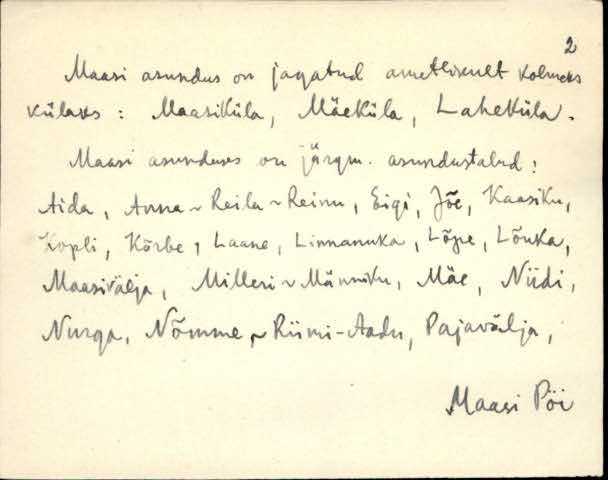 2
Maasi asundus on jagatud ametlikult kolmeks
külaks : Maasiküla, Mäeküla, Laheküla.
Maasi asunduses on järgm. asundustalud :
Aida, Anna ~ Reila ~ Reinu, Eigi, Jõe, Kaasiku,
Kopli, Kõrbe, Laane, Linnanuka, Lõpe, Lõuka,
Maasivälja, Milleri ~ Männiku, Mäe, Niidi,
Nurga, Nõmme ~ Riimi-Aadu, Pajavälja,
Maasi Pöi